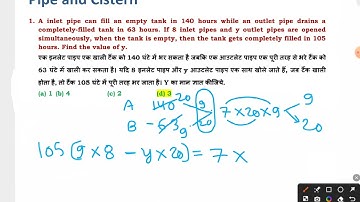 Pipe and Cistern
1. A inlet pipe can fill an empty tank in 140 hours while an outlet pipe drains a
completely-filled tank in 63 hours. If 8 inlet pipes and y outlet pipes are opened
simultaneously, when the tank is empty, then the tank gets completely filled in 105
hours. Find the value of y.
एक इनलेट पाइप एक खाली टैंक को 140 घंटे में भर सकता है जबकि एक आउटलेट पाइप एक पूरी तरह से भरे टैंक को
63 घंटे में खाली कर सकता है। यदि 8 इनलेट पाइप और y आउटलेट पाइप एक साथ खोले जाते हैं, जब टैंक खाली
होता है, तो टैंक 105 घंटे में पूरी तरह भर जाता है। Y का मान ज्ञात कीजिये.
(a) 1 (b) 4 (c) 2 (d) 3
A 140 20 9 7×20×9 9
B 63 9 20 20
105 (9×8 - y×20) = 7×